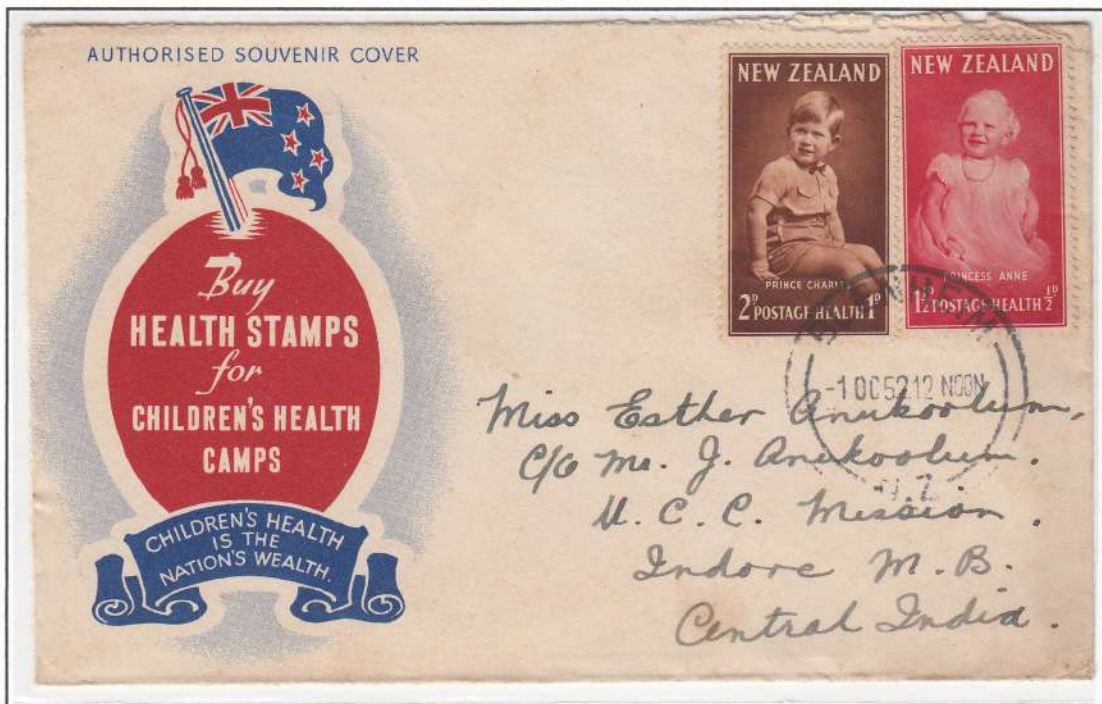 AUTHORISED SOUVENIR COVER
Buy
HEALTH STAMPS
for
CHILDREN'S HEALTH
CAMPS
CHILDREN'S HEALTH
IS THE
NATION'S WEALTH.
NEW ZEALAND
PRINCE CHARLES
2D POSTAGE HEALTH 1D
NEW ZEALAND
PRINCESS ANNE
1½ POSTAGE HEALTH ½D
BLENHEIM
-1 OC 52 12 NOON
N.Z.
Miss Esther Anukoolum,
C/O Mr. J. Anukoolum.
U. C. C. Mission.
Indore M. B.
Central India.